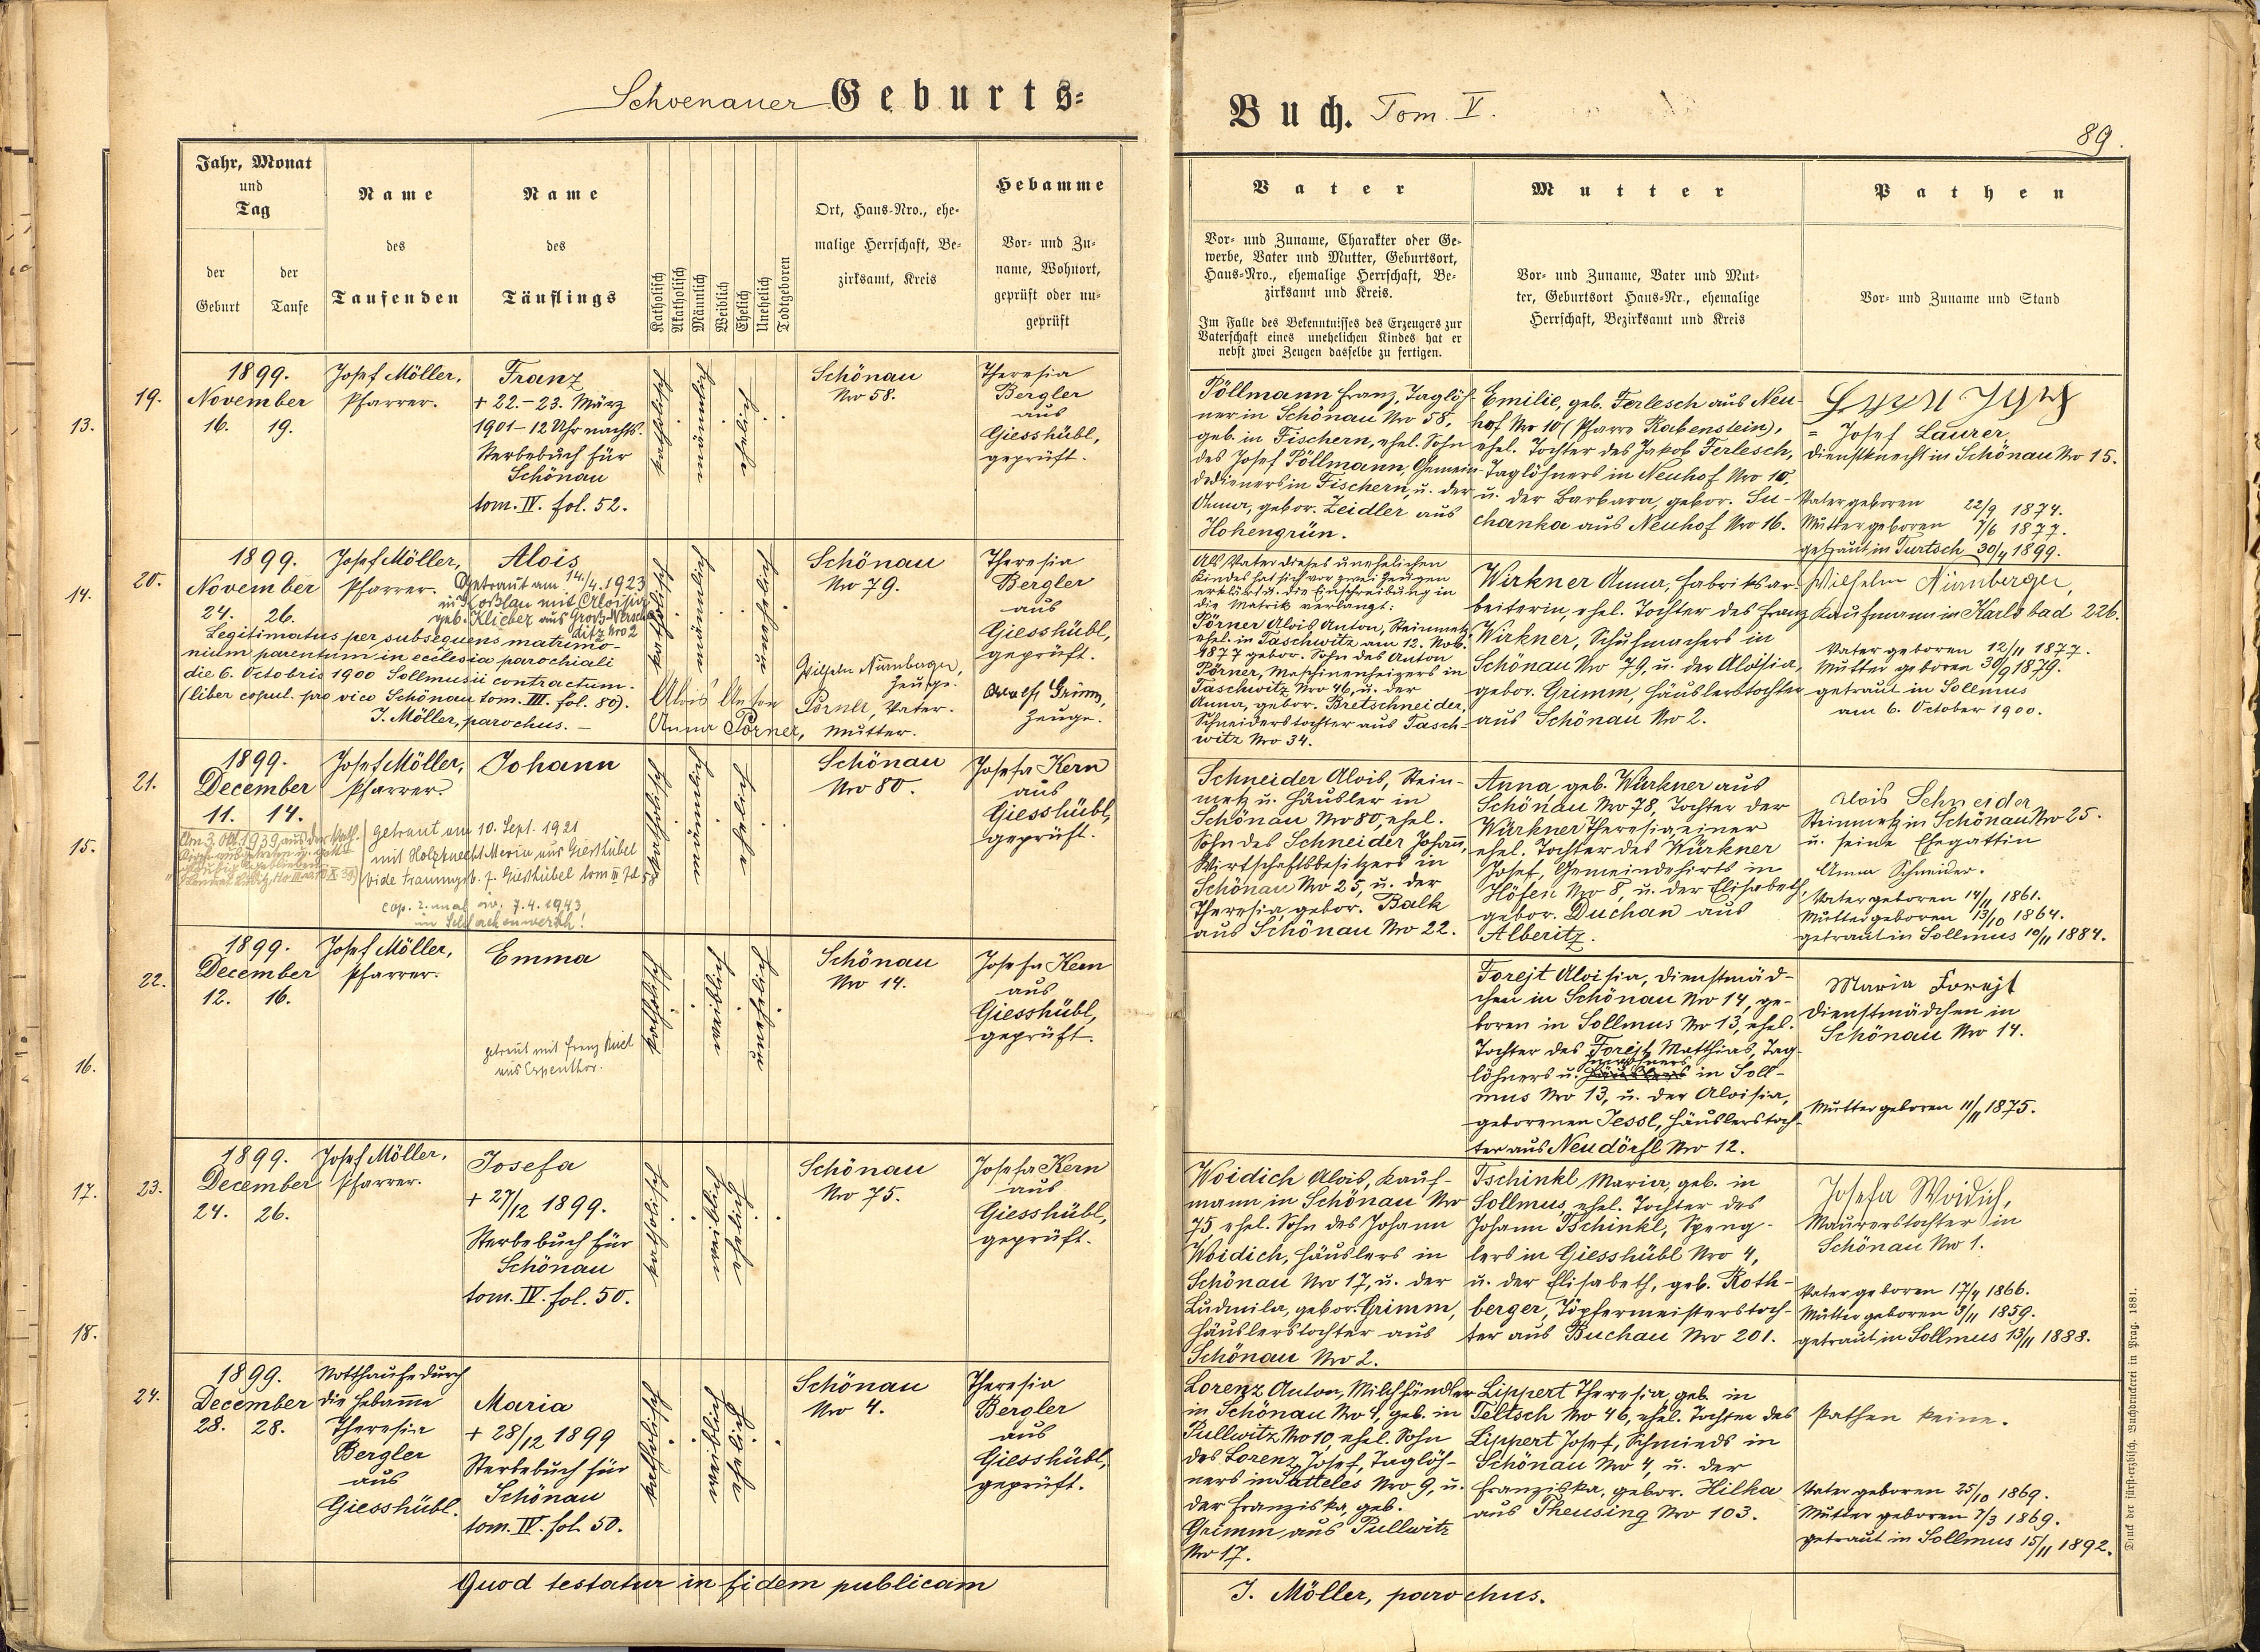 Schoenauer Geburts-
Buch. Tom. V.
89.
Jahr, Monat
und
Tag
der
Geburt
der
Taufe
Name
des
Taufenden
Name
des
Täuflings
Katholisch
Akatholisch
Männlich
Weiblich
Ehelich
Unehelich
Todtgeboren
Ort, Haus-Nro., ehe-
malige Herrschaft, Be-
zirksamt, Kreis
Hebamme
Vor- und Zu-
name, Wohnort,
geprüft oder un-
geprüft
Vater
Vor- und Zuname, Charakter oder Ge-
werbe, Vater und Mutter, Geburtsort,
Haus-Nro., ehemalige Herrschaft, Be-
zirksamt und Kreis.
Im Falle des Bekenntnisses des Erzeugers zur
Vaterschaft eines unehelichen Kindes hat er
nebst zwei Zeugen dasselbe zu fertigen.
Mutter
Vor- und Zuname, Vater und Mut-
ter, Geburtsort Haus-Nr., ehemalige
Herrschaft, Bezirksamt und Kreis
Pathen
Vor- und Zuname und Stand
13.
19.
1899.
November
16. 19.
Josef Möller,
Pfarrer.
Franz
+ 22.-23. März
1901 - 12 Uhr nachts.
Sterbebuch für
Schönau
tom. IV. fol. 52.
katholisch
männlich
ehelich
Schönau
Nro 58.
Theresia
Bergler
aus
Giesshübl,
geprüft.
Pöllmann Franz, Taglöh-
ner in Schönau Nro 58,
geb. in Fischern, ehel. Sohn
des Josef Pöllmann, Gemein-
dedieners in Fischern, u. der
Anna, gebor. Zeidler aus
Hohengrün.
Emilie, geb. Ferlesch aus Neu-
hof Nro 10 (Pfarre Rabenstein),
ehel. Tochter des Jakob Ferlesch,
Taglöhners in Neuhof Nro 10,
u. der Barbara, gebor. Su-
chanka aus Neuhof Nro 16.
= Josef Laurer,
Dienstknecht in Schönau Nro 15.
Vater geboren 22/9 1874.
Mutter geboren 7/6 1877.
getraut in Turtsch 30/4 1899.
14.
20.
1899.
November
24. 26.
Josef Möller,
Pfarrer.
Alois
Getraut am 14./4. 1923
in Koßlau mit Aloisia
geb. Klieber aus Groß-Wersch
ditz Nro 2
Legitimatus per subsequens matrimo-
nium parentum in ecclesia parochiali
die 6. Octobris 1900 Sollmusii contractum.
(liber copul. pro vico Schönau tom. III. fol. 80).
J. Möller, parochus. -
katholisch
männlich
unehelich
Schönau
Nro 79.
Theresia
Bergler
aus
Giesshübl,
geprüft.
Wilhelm Nürnberger,
Zeuge.
Alois Anton Pörner, Vater.
Anna Pörner, Mutter.
Grimm,
Zeuge.
Als Vater dieses unehelichen
Kindes hat sich vor zwei Zeugen
erklärt u. die Einschreibung in
die Matrik verlangt:
Pörner Alois Anton, Steinmetz,
ehel. in Taschwitz am 12. Nov.
1877 gebor. Sohn des Anton
Pörner, Maschinenheizers in
Taschwitz Nro 46, u. der
Anna, gebor. Bretschneider,
Schneiderstochter aus Tasch-
witz Nro 34.
Wirkner Anna, Fabriksar-
beiterin, ehel. Tochter des Franz
Wirkner, Schuhmachers in
Schönau Nro 79, u. der Aloisia,
gebor. Grimm, Häuslerstochter
aus Schönau Nro 2.
Wilhelm Nürnberger,
Kaufmann in Karlsbad 226.
Vater geboren 12/11 1877.
Mutter geboren 30/9 1879.
getraut in Sollmus
am 6. October 1900.
15.
21.
1899.
December
11. 14.
Josef Möller,
Pfarrer.
Johann
Am 3. Okt. 1939 aus der kath.
getraut am 10. Sept. 1921
mit Holzknecht Maria aus Giesshübel
vide Trauungsb. f. Giesshübel tom III fol. 58
cop. 2. mal 7.4.1943
katholisch
männlich
ehelich
Schönau
Nro 80.
Josefa Kern
aus
Giesshübl,
geprüft.
Schneider Alois, Stein-
metz u. Häusler in
Schönau Nro 80, ehel.
Sohn des Schneider Johann,
Wirtschaftsbesitzers in
Schönau Nro 25, u. der
Theresia, gebor. Balk
aus Schönau Nro 22.
Anna, geb. Würkner aus
Schönau Nro 78, Tochter der
Würkner Theresia, einer
ehel. Tochter des Würkner
Josef, Gemeindehirts in
Höfen Nro 8, u. der Elisabeth,
gebor. Duchan aus
Alberitz.
Alois Schneider
Steinmetz in Schönau Nro 25.
u. seine Ehegattin
Anna Schneider.
Vater geboren 14/11 1861.
Mutter geboren 13/10 1864.
getraut in Sollmus 10/11 1884.
16.
22.
1899.
December
12. 16.
Josef Möller,
Pfarrer.
Emma
getraut mit Franz
aus Espenthor.
katholisch
weiblich
unehelich
Schönau
Nro 14.
Josefa Kern
aus
Giesshübl,
geprüft.
Forejt Aloisia, Dienstmäd-
chen in Schönau Nro 14, ge-
boren in Sollmus Nro 13, ehel.
Tochter des Forejt Matthias, Tag-
löhners u. Inwohners in Soll-
mus Nro 13, u. der Aloisia,
geborenen Jessl, Häuslerstoch-
ter aus Neudörfl Nro 12.
Maria Forejt
Dienstmädchen in
Schönau Nro 14.
Mutter geboren 11/11 1875.
17.
23.
1899.
December
24. 26.
Josef Möller,
Pfarrer.
Josefa
+ 27/12 1899.
Sterbebuch für
Schönau
tom. IV. fol. 50.
katholisch
weiblich
ehelich
Schönau
Nro 75.
Josefa Kern
aus
Giesshübl,
geprüft.
Woidich Alois, Kauf-
mann in Schönau Nro
75, ehel. Sohn des Johann
Woidich, Häuslers in
Schönau Nro 17, u. der
Ludmila, gebor. Grimm,
Häuslerstochter aus
Schönau Nro 2.
Tschinkl Maria, geb. in
Sollmus, ehel. Tochter des
Johann Tschinkl, Speng-
lers in Giesshübl Nro 4,
u. der Elisabeth, geb. Roth-
berger, Töpfermeisterstoch-
ter aus Buchau Nro 201.
Josefa Woidich,
Maurerstochter in
Schönau Nro 1.
Vater geboren 17/4 1866.
Mutter geboren 3/11 1859.
getraut in Sollmus 13/11 1888.
18.
24.
1899.
December
28. 28.
Notthaufe durch
die Hebamme
Theresia
Bergler
aus
Giesshübl.
Maria
+ 28/12 1899
Sterbebuch für
Schönau
tom. IV. fol. 50.
katholisch
weiblich
ehelich
Schönau
Nro 4.
Theresia
Bergler
aus
Giesshübl,
geprüft.
Lorenz Anton, Milchhändler
in Schönau Nro 4, geb. in
Pullwitz Nro 10, ehel. Sohn
des Lorenz Josef, Taglöh-
ners in Satteles Nro 9, u.
der Franziska, geb.
Grimm aus Pullwitz
Nro 17.
Lippert Theresia, geb. in
Teltsch Nro 46, ehel. Tochter des
Lippert Josef, Schmieds in
Schönau Nro 4, u. der
Franziska, gebor. Hilka
aus Theusing Nro 103.
Pathen keine.
Vater geboren 25/10 1869.
Mutter geboren 7/3 1869.
getraut in Sollmus 15/11 1892.
Quod testatur in fidem publicam
J. Möller, parochus.
Druck der fürst-erzbisch. Buchdruckerei in Prag. 1881.